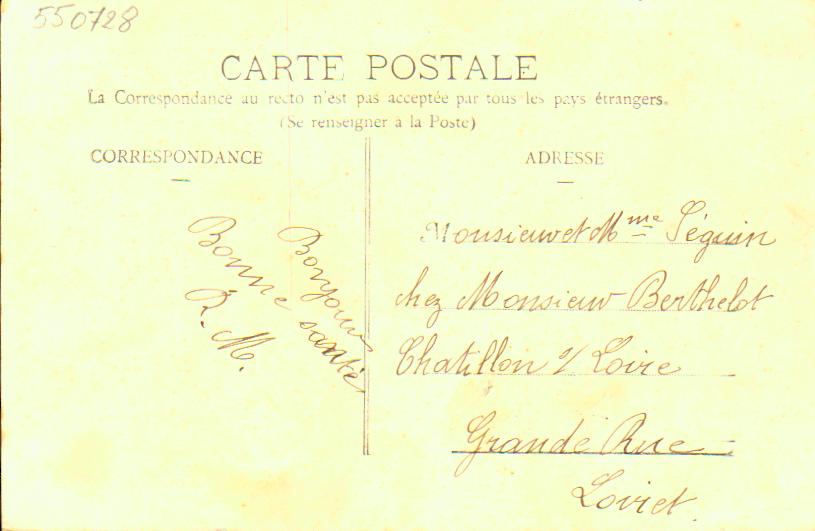 550728
CARTE POSTALE
La Correspondance au recto n'est pas acceptée par tous les pays étrangers.
(Se renseigner à la Poste)
CORRESPONDANCE
Bonjour
Bonne santé
R. M.
ADRESSE
Monsieur et Mme Séguin
chez Monsieur Berthelot
Chatillon s/ Loire
Grande Rue
Loiret